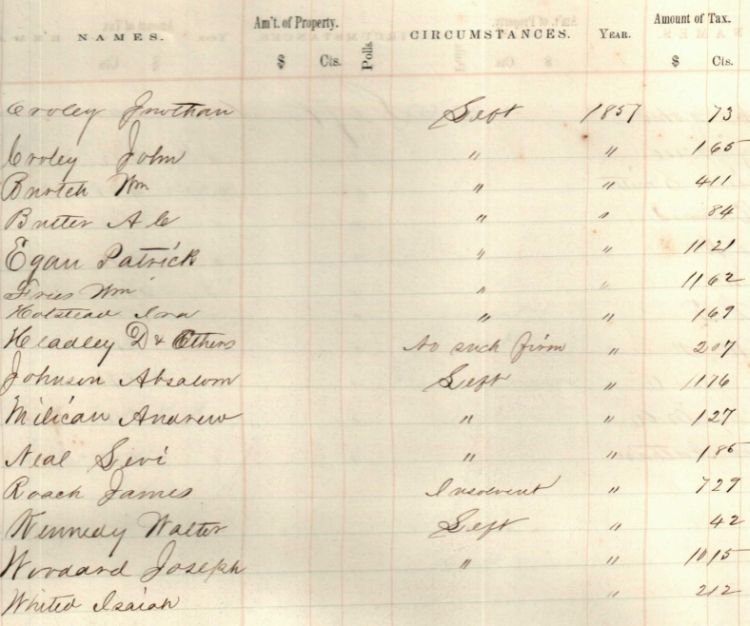 NAMES. Am't. of Property. Polls. CIRCUMSTANCES. YEAR. Amount of Tax.
$ Cts. $ Cts.
Croley Jnothan Left 1857 73
Croley John " " 1 65
Burtch Wm " " 4 11
Butter A C " " 84
Egan Patrick " " 11 21
Fries Wm " " 11 62
Holstead Ira " " 1 69
Headley D & Others No such firm " 2 07
Johnson Absalom Left " 11 76
Milican Andrew " " 1 27
Neal Levi " " 1 85
Roach James Insolvent " 7 29
Kennedy Walter Left " 42
Woodard Joseph " " 10 15
Whited Isaiah " 2 12